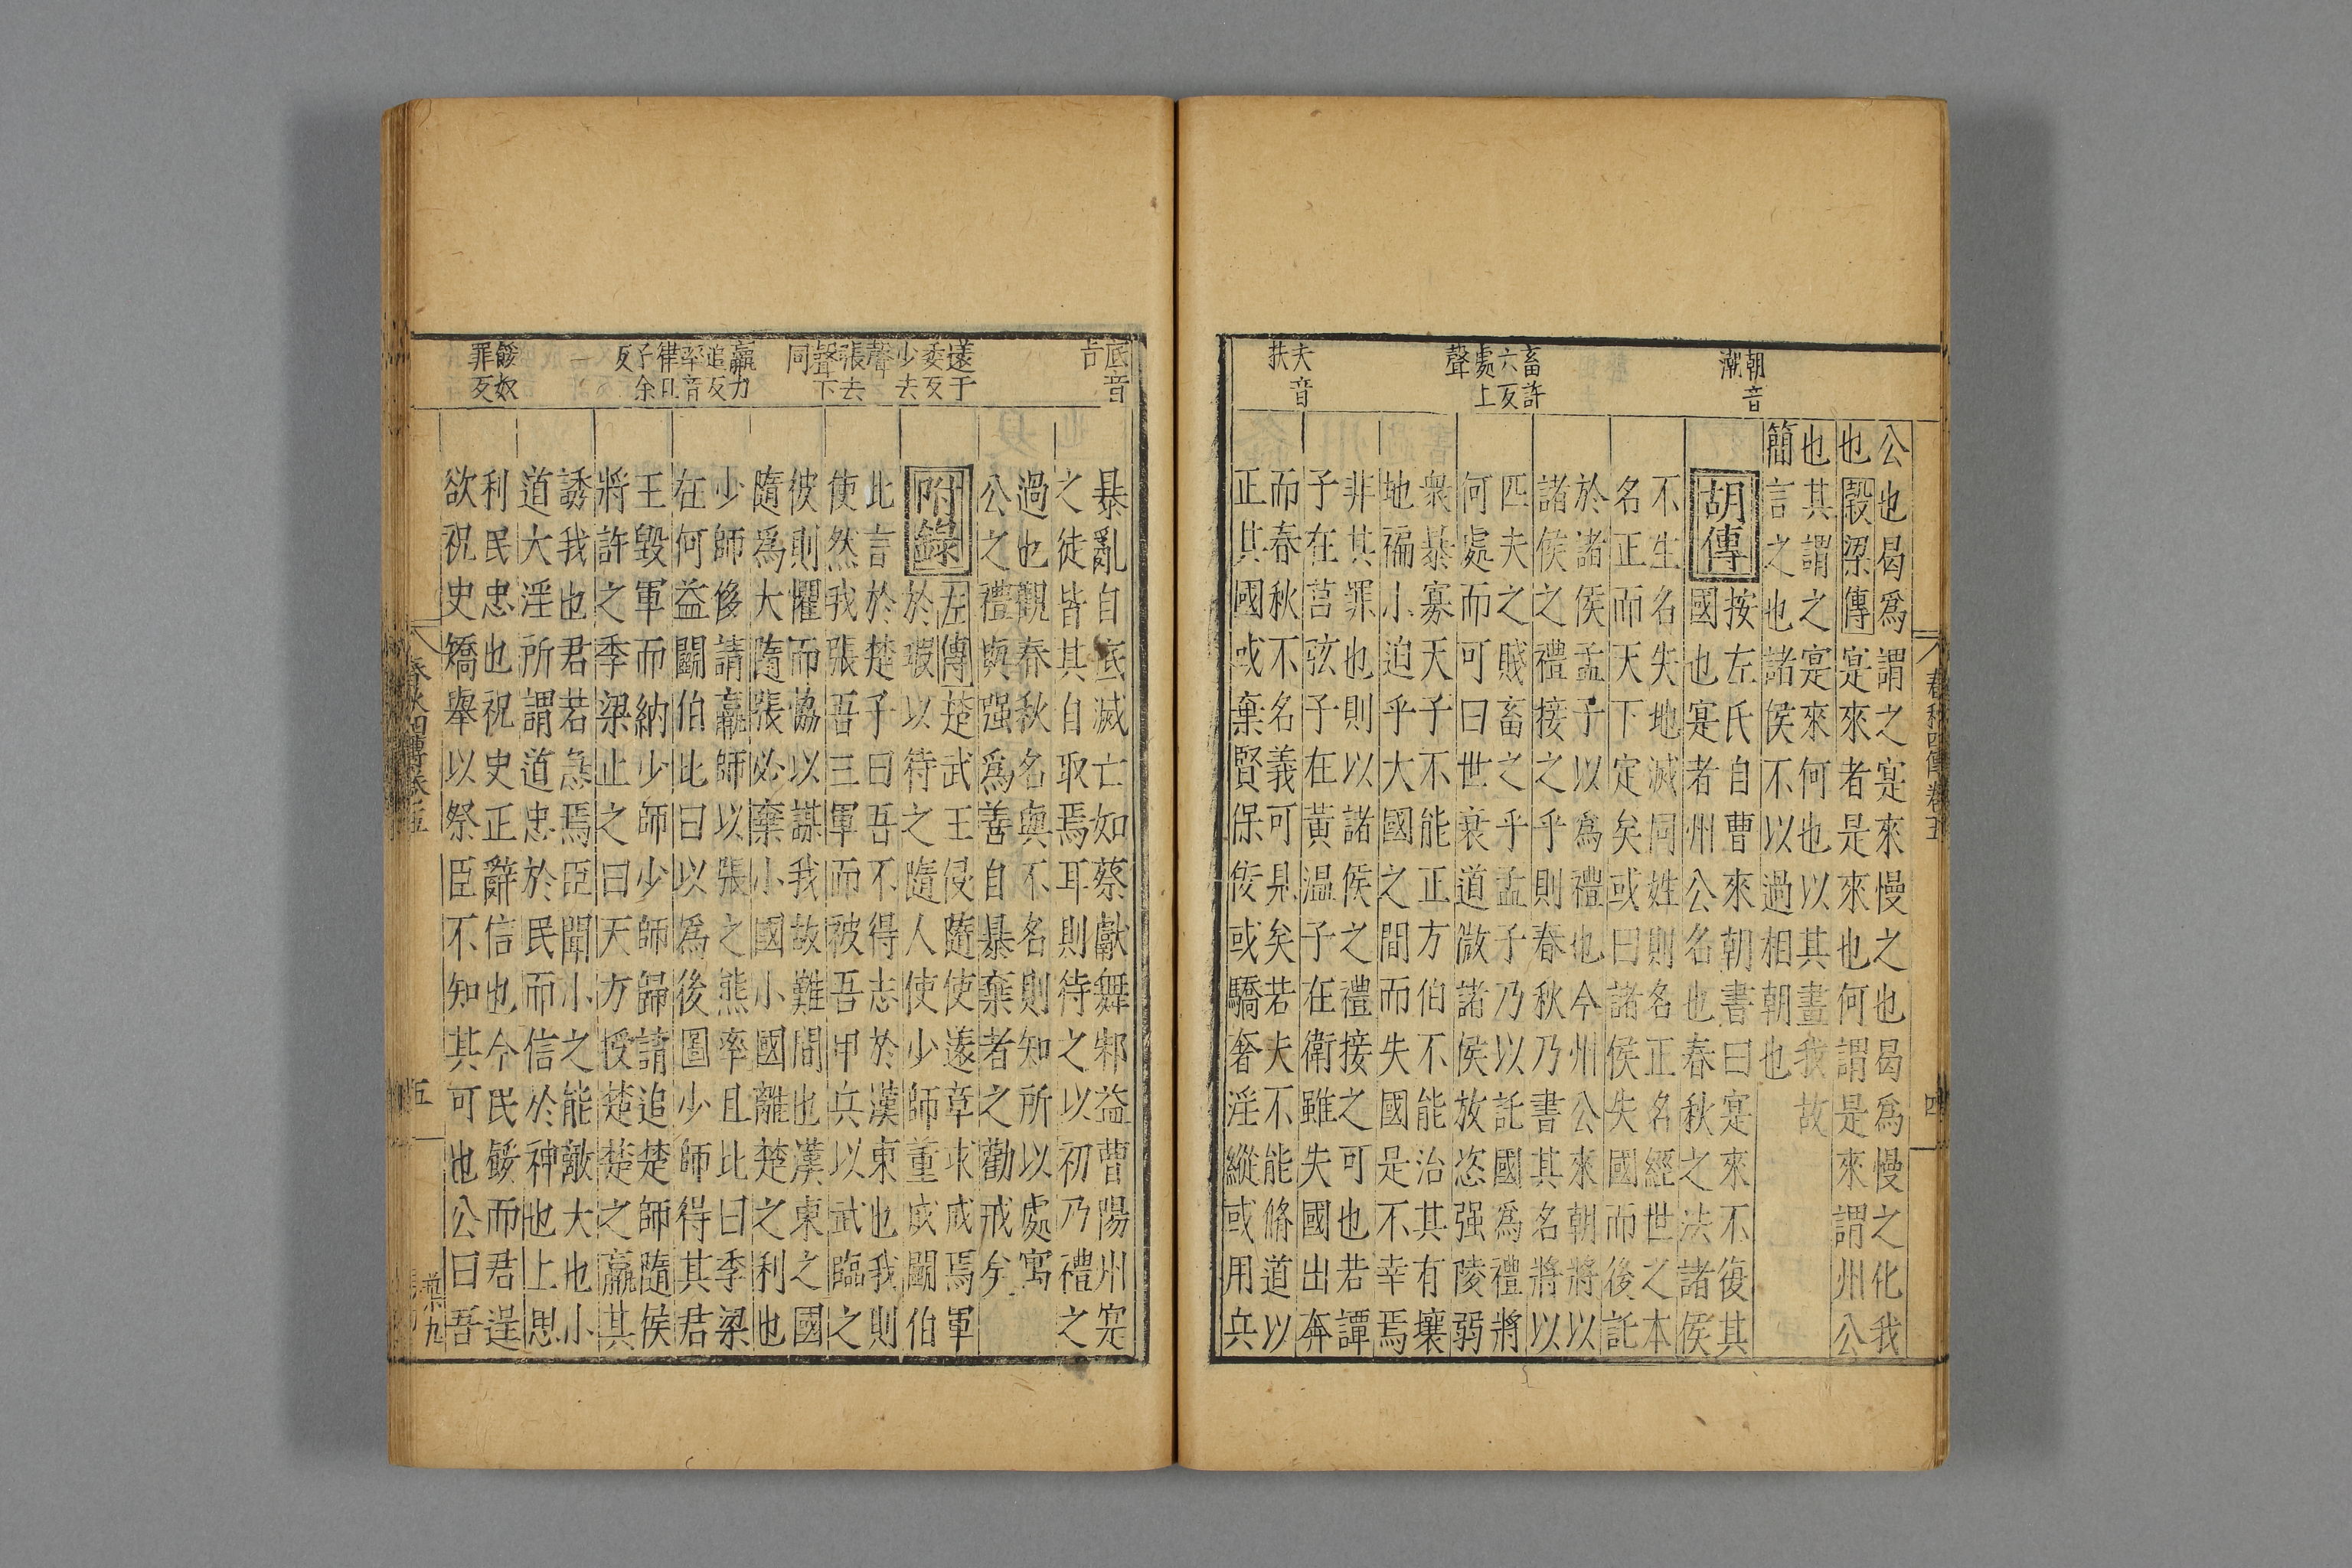 朝音
潮
畜許
六反
處上
聲
夫音
扶
春秋四傳卷五
四
公也曷爲謂之寔來慢之也曷爲慢之化我
也穀梁傳寔來者是來也何謂是來謂州公
也其謂之寔來何也以其畫我故
簡言之也諸侯不以過相朝也
胡傳
按左氏自曹來朝書曰寔來不復其
國也寔者州公名也春秋之法諸侯
不生名失地滅同姓則名正名經世之本
名正而天下定矣或曰諸侯失國而後託
於諸侯孟子以爲禮也今州公來朝將以
諸侯之禮接之乎則春秋乃書其名將以
匹夫之賤畜之乎孟子乃以託國爲禮將
何處而可曰世衰道微諸侯放恣强陵弱
衆暴寡天子不能正方伯不能治其有壤
地褊小迫乎大國之間而失國是不幸焉
非其罪也則以諸侯之禮接之可也若譚
子在莒弦子在黃温子在衛雖失國出奔
而春秋不名義可見矣若夫不能脩道以
正其國或棄賢保佞或驕奢淫縱或用兵
底音
薳于
委反
少去
聲
張去
聲下
同
羸力
追反
率音
律且
子余
反
餒奴
罪反
暴亂自底滅亡如蔡獻舞邾益曹陽州寔
之徒皆其自取焉耳則待之以初乃禮之
過也觀春秋名與不名則知所以處寓
公之禮與强爲善自暴棄者之勸戒矣
附錄
左傳楚武王侵隨使薳章求成焉軍
於瑕以待之隨人使少師董成鬭伯
比言於楚子曰吾不得志於漢東也我則
使然我張吾三軍而被吾甲兵以武臨之
彼則懼而協以謀我故難間也漢東之國
隨爲大隨張必棄小國小國離楚之利也
少師侈請羸師以張之熊率且比曰季梁
在何益鬭伯比曰以爲後圖少師得其君
王毁軍而納少師少師歸請追楚師隨侯
將許之季梁止之曰天方授楚楚之羸其
誘我也君若急焉臣聞小之能敵大也小
道大淫所謂道忠於民而信於神也上思
利民忠也祝史正辭信也今民餒而君逞
欲祝史矯舉以祭臣不知其可也公曰吾
春秋四傳卷五
五
葉九